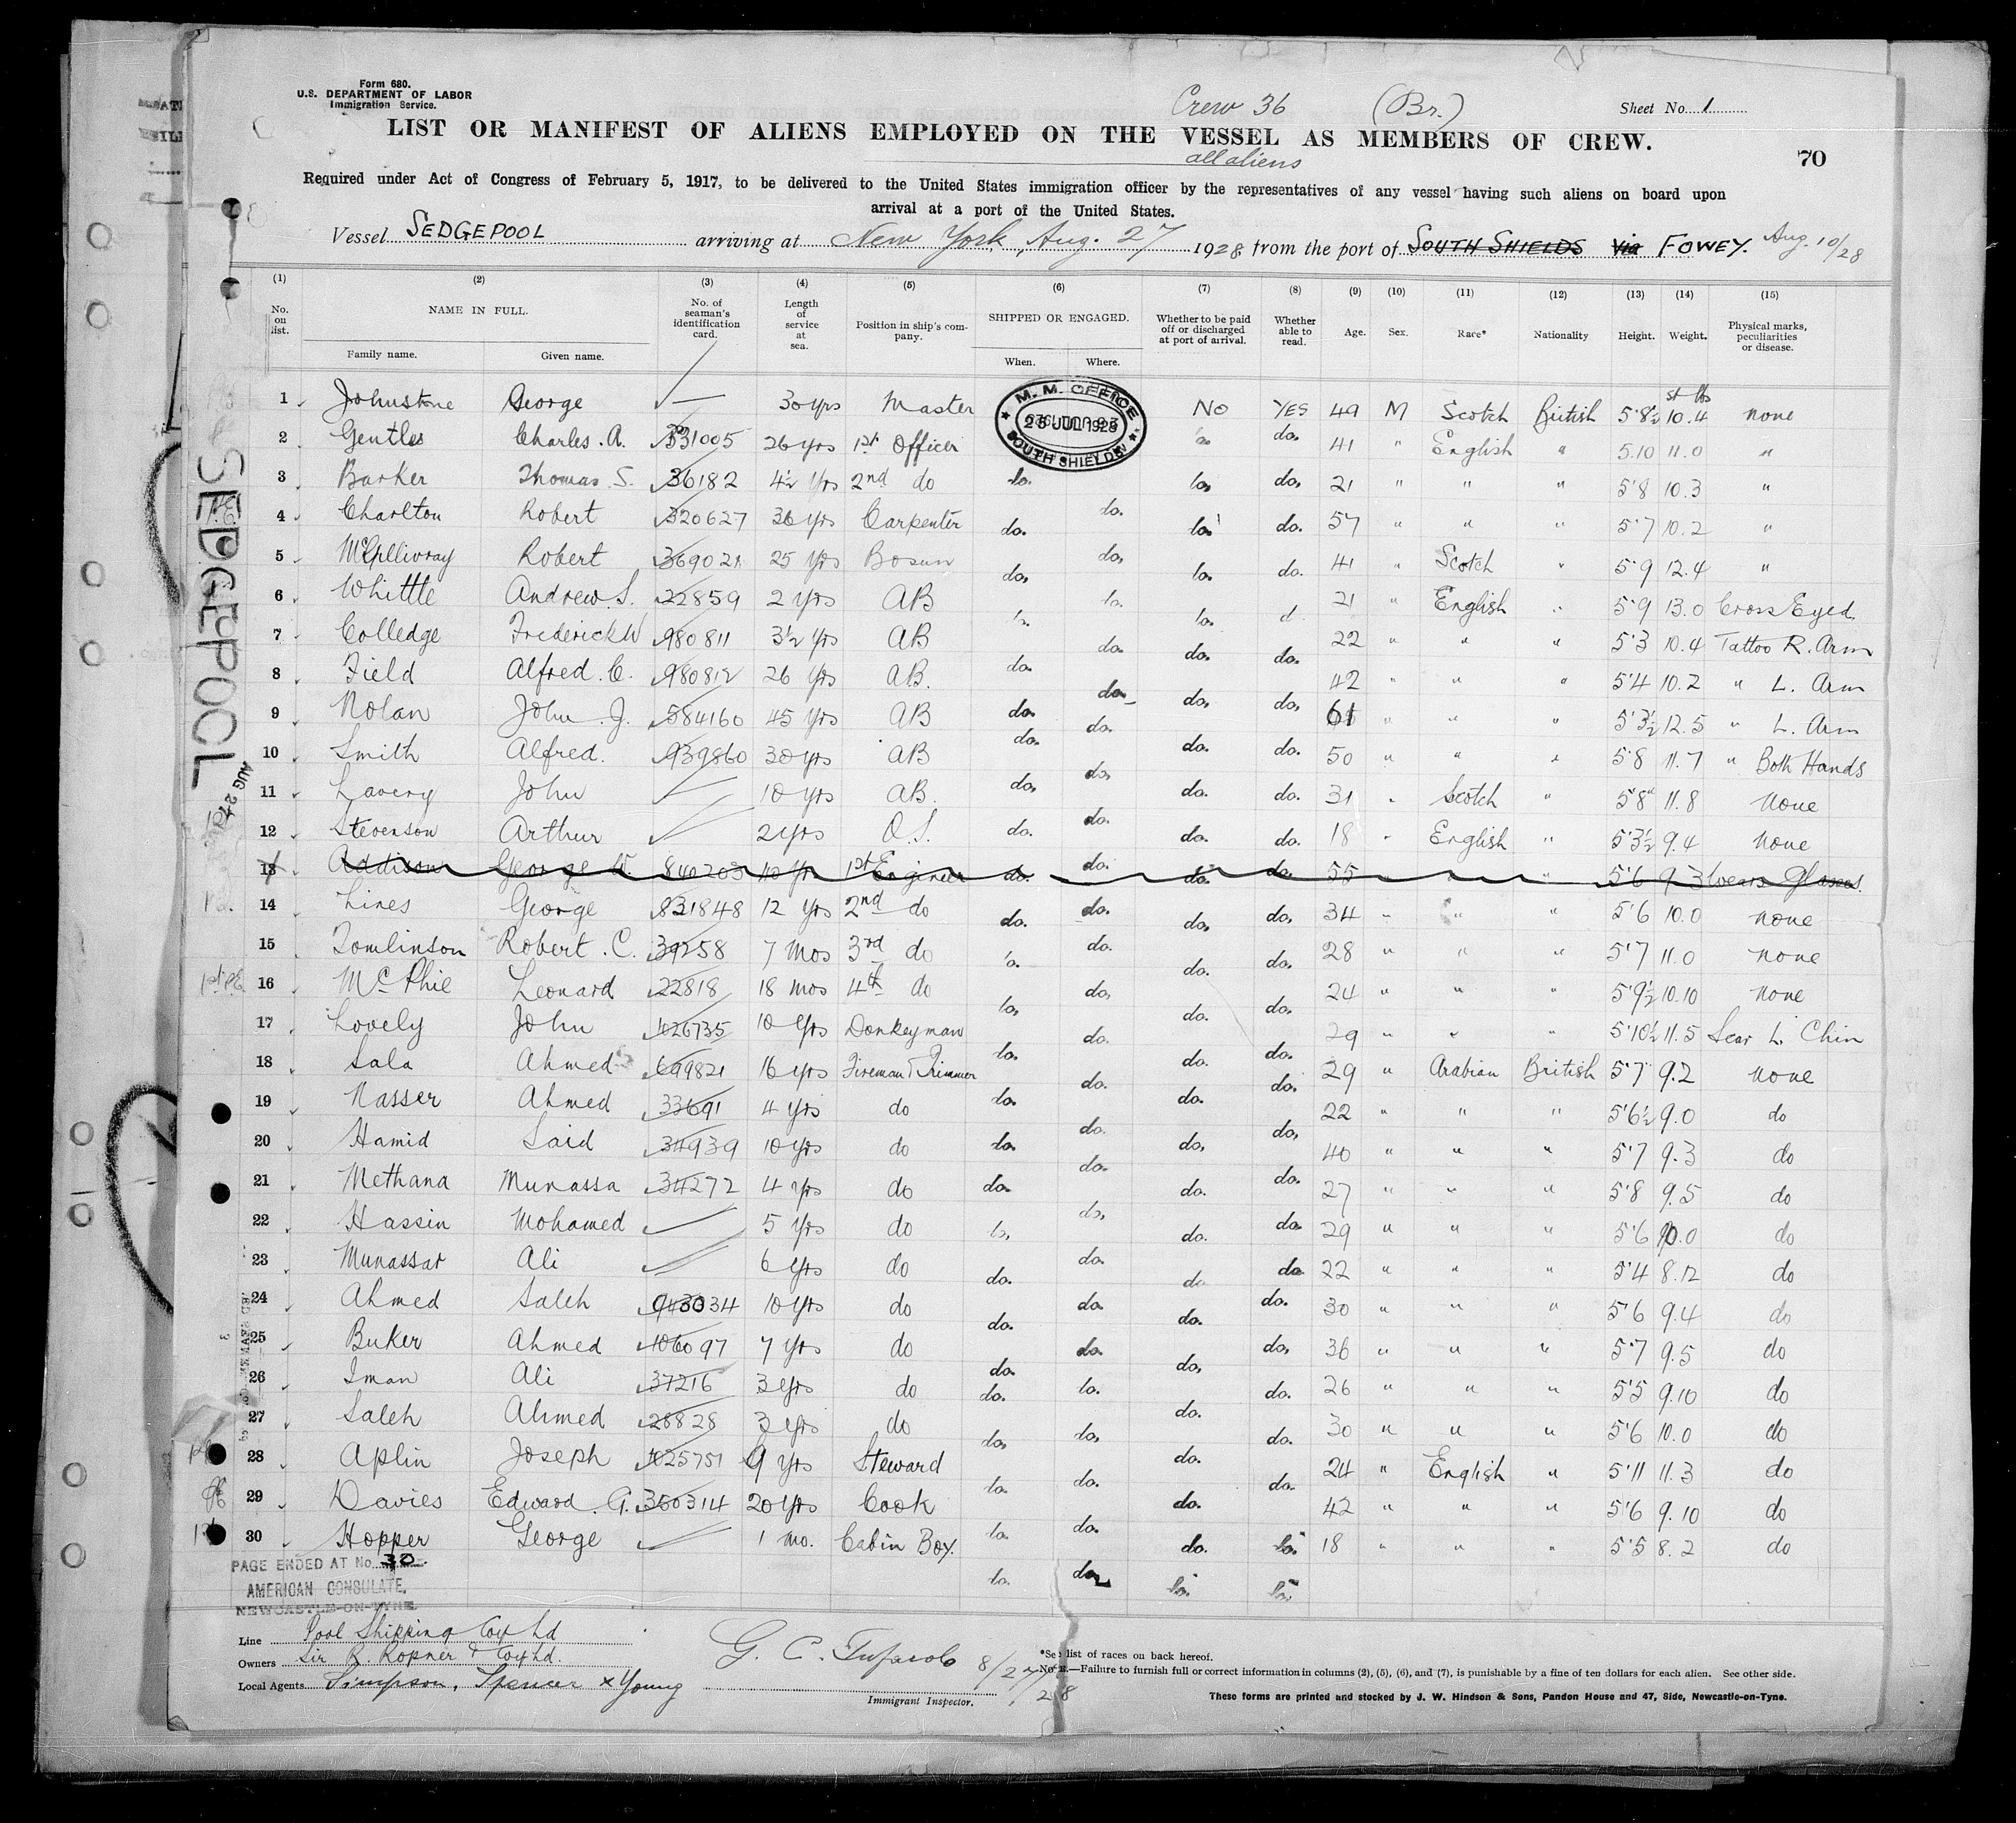 Form 680.
U.S. DEPARTMENT OF LABOR
Immigration Service.
Crew 36 (Br.)
Sheet No. 1
LIST OR MANIFEST OF ALIENS EMPLOYED ON THE VESSEL AS MEMBERS OF CREW.
all aliens
70
Required under Act of Congress of February 5, 1917, to be delivered to the United States immigration officer by the representatives of any vessel having such aliens on board upon
arrival at a port of the United States.
Vessel SEDGEPOOL arriving at New York, Aug. 27 1928 from the port of SOUTH SHIELDS via FOWEY. Aug. 10/28
(1) (2) (3) (4) (5) (6) (7) (8) (9) (10) (11) (12) (13) (14) (15)
No. on list. NAME IN FULL. Family name. Given name. No. of seaman's identification card. Length of service at sea. Position in ship's company. SHIPPED OR ENGAGED. When. Where. Whether to be paid off or discharged at port of arrival. Whether able to read. Age. Sex. Race* Nationality Height. Weight. Physical marks, peculiarities or disease.
st lbs
M. M. OFFICE
28 JUL 1928
SOUTH SHIELDS
1 Johnstone George — 30 yrs Master No YES 49 M Scotch British 5'8½ 10.4 none
2 Gentles Charles. A. 331005 26 yrs 1st Officer do. do. 41 " English " 5.10 11.0 "
3 Barker Thomas S. 36182 4½ yrs 2nd do do. do. do. 21 " " " 5'8 10.3 "
4 Charlton Robert 320627 36 yrs Carpenter do. do. do. do. 57 " " " 5'7 10.2 "
5 McGillivray Robert 369021 25 yrs Bosun do. do. do. do. 41 " Scotch " 5'9 12.4 "
6 Whittle Andrew. S. 22859 2 yrs AB do. do. do. d 21 " English " 5'9 13.0 Cross Eyed
7 Colledge Frederick W 980811 3½ yrs AB do. do. do. do. 22 " " " 5'3 10.4 Tattoo R. Arm
8 Field Alfred. C. 980812 26 yrs AB. do. do. do. do. 42 " " " 5'4 10.2 " L. Arm
9 Nolan John. J. 584160 45 yrs AB do. do. do. do. 61 " " " 5'3½ 12.5 " L. Arm
10 Smith Alfred. 939860 30 yrs AB do. do. do. do. 50 " " " 5'8 11.7 " Both Hands
11 Lavery John 10 yrs AB. do. do. do. do. 31 " Scotch " 5'8" 11.8 None
12 Stevenson Arthur 2 yrs O.S. do. do. do. do. 18 " English " 5'3½ 9.4 None
13 Addison George W. 840203 40 yrs 1st Engineer do. do. do. do. 55 " " " 5'6 9.3 wears glasses
14 Lines George 831848 12 yrs 2nd do do. do. do. do. 34 " " " 5'6 10.0 none
15 Tomlinson Robert. C. 39258 7 mos 3rd do do. do. do. do. 28 " " " 5'7 11.0 none
16 McPhie Leonard 22818 18 mos 4th do do. do. do. do. 24 " " " 5'9½ 10.10 none
17 Lovely John 1026735 10 yrs Donkeyman do. do. do. do. 29 " " " 5'10½ 11.5 Scar L. Chin
18 Sala Ahmed 699821 16 yrs Fireman & Trimmer do. do. do. do. 29 " Arabian British 5'7 9.2 none
19 Nasser Ahmed 33691 4 yrs do do. do. do. do. 22 " " " 5'6½ 9.0 do
20 Hamid Said 34939 10 yrs do do. do. do. do. 40 " " " 5'7 9.3 do
21 Methana Munassa 34272 4 yrs do do. do. do. do. 27 " " " 5'8 9.5 do
22 Hassin Mohamed 5 yrs do do. do. do. do. 29 " " " 5'6 10.0 do
23 Munassar Ali 6 yrs do do. do. do do 22 " " " 5'4 8.12 do
24 Ahmed Saleh 943034 10 yrs do do. do. do. do. 30 " " " 5'6 9.4 do
25 Buker Ahmed 106097 7 yrs do do. do. do. do. 36 " " " 5'7 9.5 do
26 Iman Ali 37216 3 yrs do do. do. do. do. 26 " " " 5'5 9.10 do
27 Saleh Ahmed 28828 3 yrs do do. do. do. do. 30 " " " 5'6 10.0 do
28 Aplin Joseph 1025751 9 yrs Steward do. do. do. do. 24 " English " 5'11 11.3 do
29 Davies Edward. G. 350314 20 yrs Cook do. do. do. do. 42 " " " 5'6 9.10 do
30 Hopper George 1 mo. Cabin Boy. do. do. do. do. 18 " " " 5'5 8.2 do
PAGE ENDED AT No. 30.
AMERICAN CONSULATE,
NEWCASTLE-ON-TYNE.
SEDGEPOOL
AUG 27
Line Pool Shipping Coy Ltd
Owners Sir R. Ropner & Coy Ltd.
Local Agents Simpson, Spencer & Young
8/27/28
Immigrant Inspector.
*See list of races on back hereof.
NOTE.—Failure to furnish full or correct information in columns (2), (5), (6), and (7), is punishable by a fine of ten dollars for each alien. See other side.
These forms are printed and stocked by J. W. Hindson & Sons, Pandon House and 47, Side, Newcastle-on-Tyne.